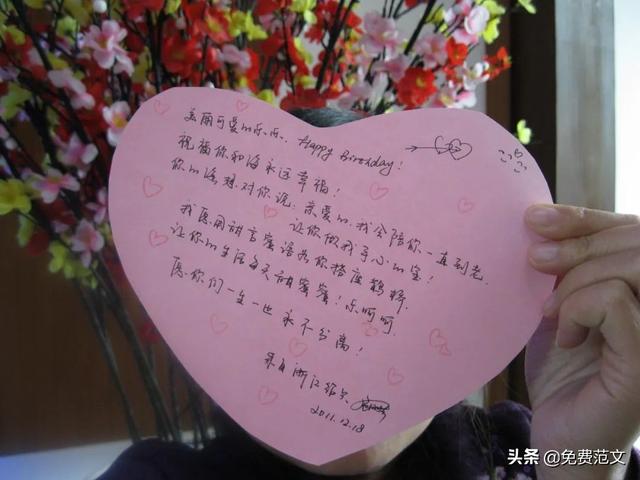 美丽可爱的乐乐、Happy Birthday!
祝福你和海永远幸福!
你的海想对你说.亲爱的.我会陪你一直到老.
让你做我手心的宝!
我愿用甜言蜜语为你搭座鹊桥.
让你的生活每天甜蜜蜜!乐呵呵.
愿你们一生一世永不分离!
来自浙江绍兴
2011.12.18
头条 @免费范文